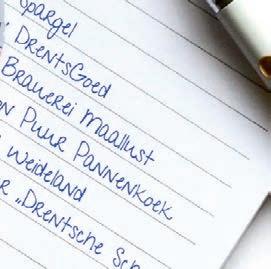 Spargel
DrentsGoed
Brauerei Maallust
Puur Pannenkoek
Weideland
„Drentsche